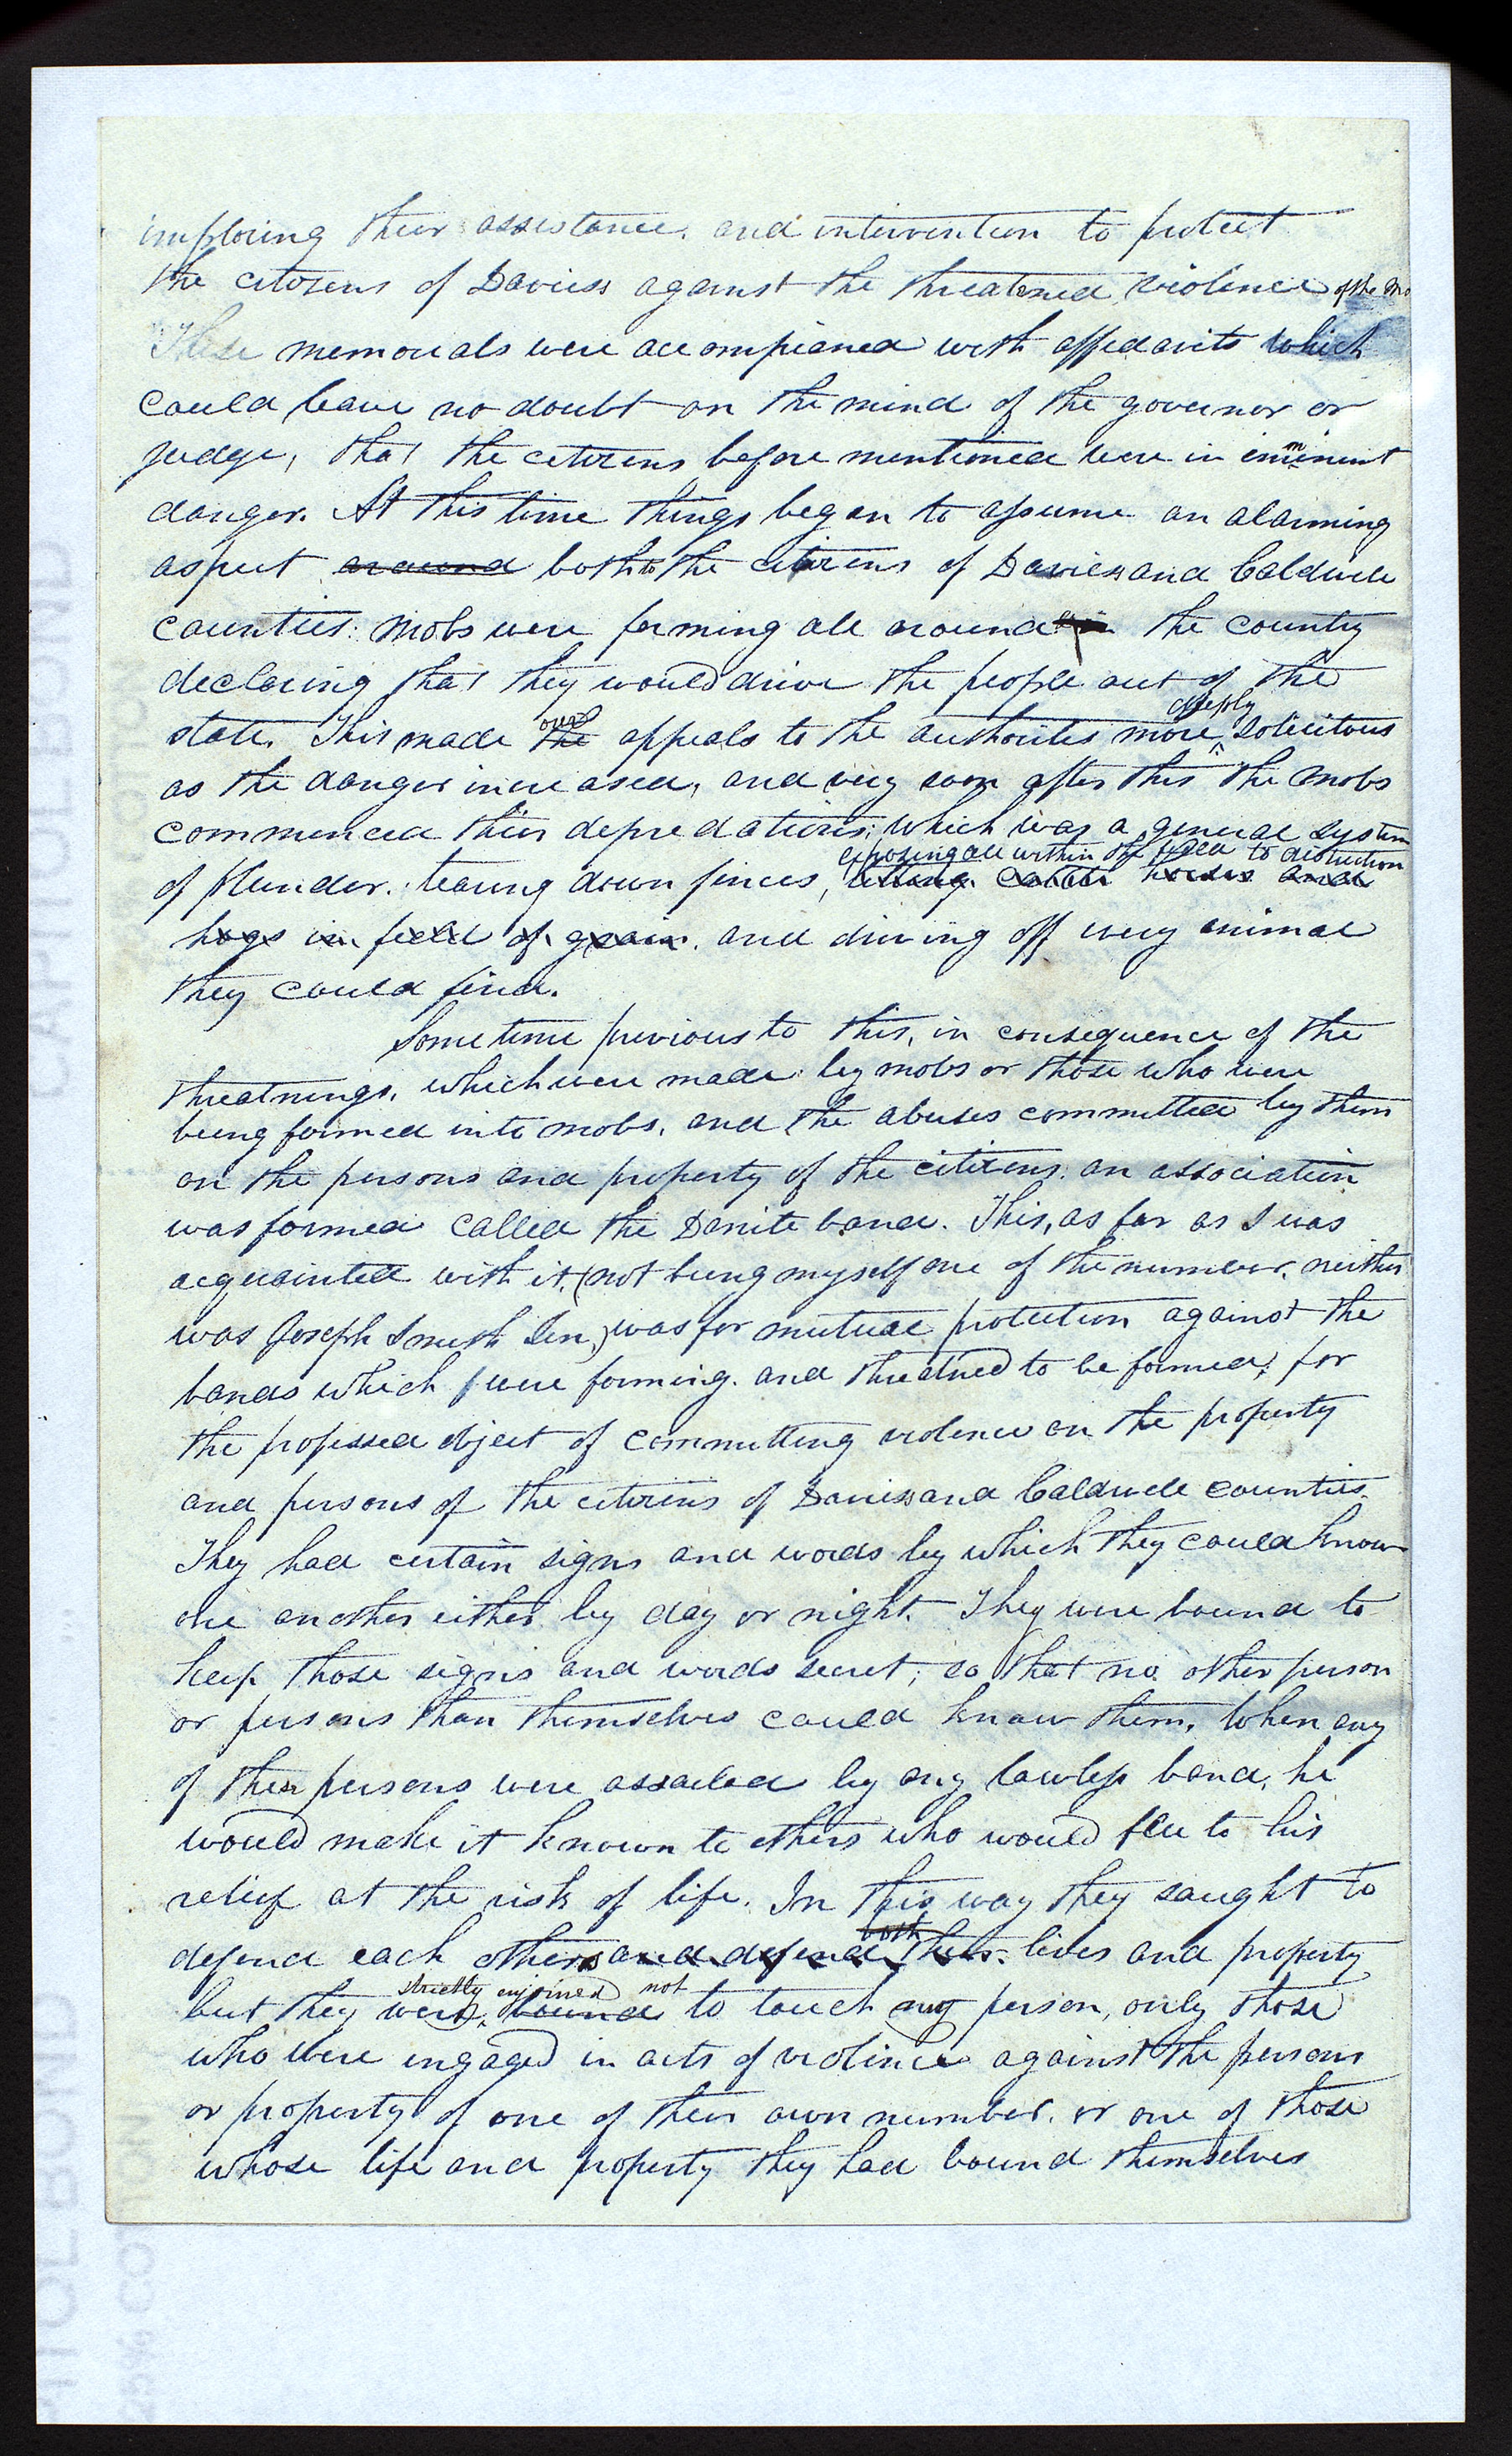 imploring their assistance, and intervention to protect
the citozens of Daviess against the threatened violence of the mo
These memorials were accompianed with affidavits which
could leave no doubt on the mind of the governor or
judge, that the citizens before mentioned were in imminent
danger. At this time things began to assume an alarming
aspect around both to the citizens of Daviess and Caldwell
counties. Mobs were forming all around the country
declaring that they would drive the people out of the
deeply
state. This made the our appeals to the authorities more solicitous
as the danger increased, and very soon after this the mobs
commenced their depredations; which was a general system
exposing all within the field to distruction
of plunder. tearing down fences, letting cattle horses and
hogs in field of grain. and driving off every animal
they could find.
Some time previous to this, in consequence of the
threatnings, which were made by mobs or those who were
being formed into mobs, and the abuses committed by them
on the persons and property of the citizens. an association
was formed called the Danite band. This, as far as I was
acquainted with it, (not being myself one of the number, neither
was Joseph Smith Sen,) was for mutual protection against the
bands which were forming. and threatned to be formed; for
the professed object of committing violence on the property
and persons of the citizens of Daviess and Caldwell counties.
They had certain signs and words by which they could know
one another either by day or night. They were bound to
keep those signs and words secret; so that no other person
or persons than themselves could know them. When any
of these persons were assailed by any lawless band, he
would make it known to others who would flee to his
relief at the risk of life. In this way they saught to
both
defend each others and defend their lives and property
strictly enjoined not
but they were bound to touch any person, only those
who were engaged in acts of violence against the persons
or property of one of their own number. or one of those
whose life and property they had bound themselves